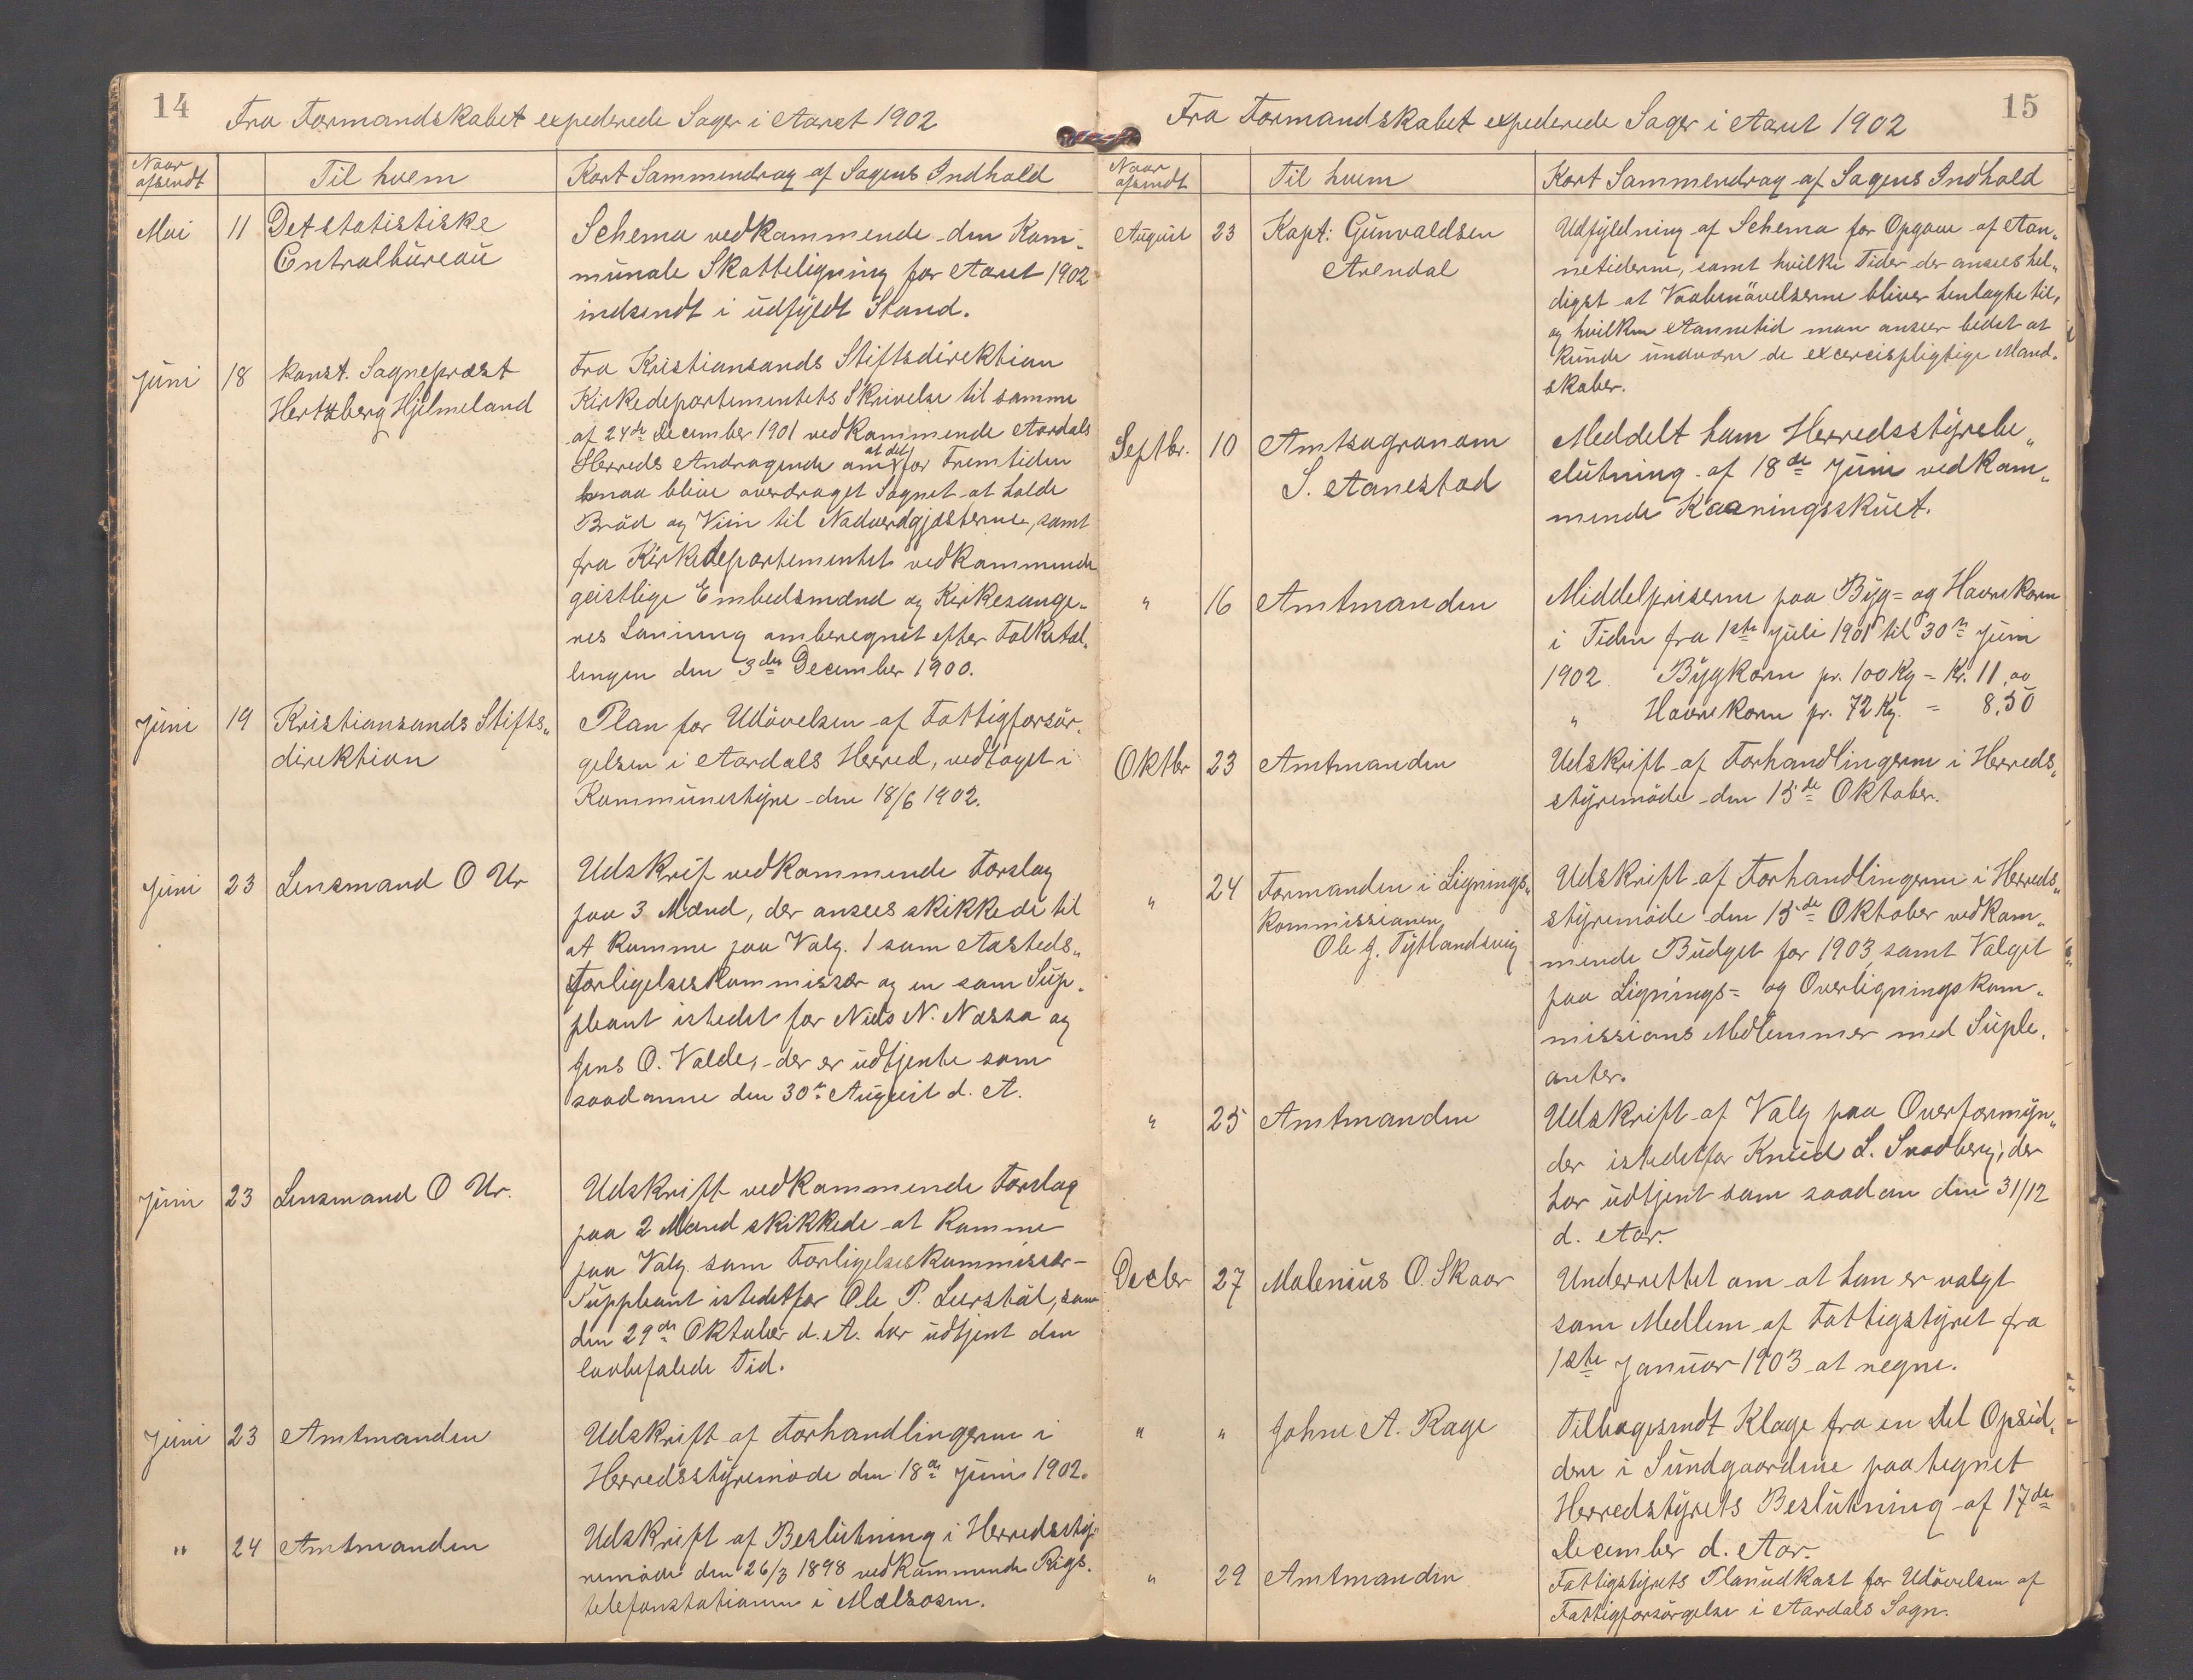 14
Fra Formandskabet expederede Sager i Aaret 1902
Naar afsendt
Til hvem
Kort Sammendrag af Sagens Indhold
Mai 11 Det statistiske
Centralbüreaü
Schema vedkommende den Kom-
münale Skatteligning for Aaret 1902
indsendt i üdfyldt Stand.
Jüni 18 konst. Sogneprest
Hertzberg Hjelmeland
Fra Kristiansands Stiftsdirektion
Kirkedepartementets Skrivelse til samme
af 24de December 1901 vedkommende Aardals
Herreds Andragende om at det for Fremtiden
maa blive overdraget Sognet at holde
Bröd og Viin til Nadverdgjæsterne, samt
fra Kirkedepartementet vedkommende
geistlige Embedsmænd og Kirkesange-
res Lönning omberegnet efter Folketæl-
lingen den 3die December 1900.
Jüni 19 Kristiansands Stifts-
direktion
Plan for Udövelsen af Fattigforsör-
gelsen i Aardals Herred, vedtaget i
Kommünestyre den 18/6 1902.
Jüni 23 Lensmand O Ur
Udskrift vedkommende Forslag
paa 3 Mænd, der ansees skikkede til
at komme paa Valg. 1 som Aasteds-
Forligelseskommissær og en som Süp-
pleant istedet for Niels N. Nessa og
Jens O. Valde, der er üdtjente som
saadanne den 30te Aügüst d. A.
Jüni 23 Lensmand O Ur.
Udskrift vedkommende Forslag
paa 2 Mænd skikkede at komme
paa Valg som Forligelseskommissær-
Süppleant istedetfor Ole P. Leirstöl, som
den 29de Oktober d. A. har üdtjent den
lovbefalede Tid.
Jüni 23 Amtmanden
Udskrift af Forhandlingerne i
Herredsstyremöde den 18de Jüni 1902.
" 24 Amtmanden
Udskrift af Beslütning i Herredssty-
remöde den 26/3 1898 vedkommende Rigs-
telefonstationen i Mælsosen.
15
Fra Formandskabet expederede Sager i Aaret 1902
Naar afsendt
Til hvem
Kort Sammendrag af Sagens Indhold
Aügüst 23 Kapt: Günvaldsen
Arendal
Udfyldning af Schema for Opgave af Aan-
netiderne, samt hvilke Tider der ansees hel-
digst at Vaabenövelserne bliver henlagte til,
og hvilken Aannetid man anseer bedst at
künde ündvære de excercispligtige Mand-
skaber.
Septbr. 10 Amtsagronom
S. Aanestad
Meddelt ham Herredsstyrebe-
slütning af 18de Jüni vedkom-
mende Kaaringsskuet.
" 16 Amtmanden
Middelpriserne paa Byg= og Havrekorn
i Tiden fra 1ste Jüli 1901 til 30te Jüni
1902. Bygkorn pr. 100 Kg = Kr. 11,00
" Havrekorn pr. 72 Kg. = 8,50
Oktbr 23 Amtmanden
Udskrift af Forhandlingerne i Herreds-
styremöde den 15de Oktober.
" 24 Formanden i Lignings-
kommissionen
Ole J. Tytlandsvig
Udskrift af Forhandlingerne i Herreds-
styremöde den 15de Oktober vedkom-
mende Büdget for 1903, samt Valget
paa Lignings= og Overligningskom-
missions Medlemmer med Süple-
anter.
" 25 Amtmanden
Udskrift af Valg paa Overformyn-
der istedetfor Knüd L. Svadberg, der
har üdtjent som saadan den 31/12
d. Aar.
Decbr 27 Maleniüs O. Skaar
Underrettet om at han er valgt
som Medlem af Fattigstyret fra
1ste Janüar 1903 at regne.
" " Johne A. Rage
Tilbagesendt Klage fra en Del Opsid-
dere i Sündgaardene paategnet
Herredstyrets Beslütning af 17de
December d. Aar.
" 29 Amtmanden
Fattigstyrets Planüdkast for Udövelsen af
Fattigforsörgelse i Aardals Sogn.